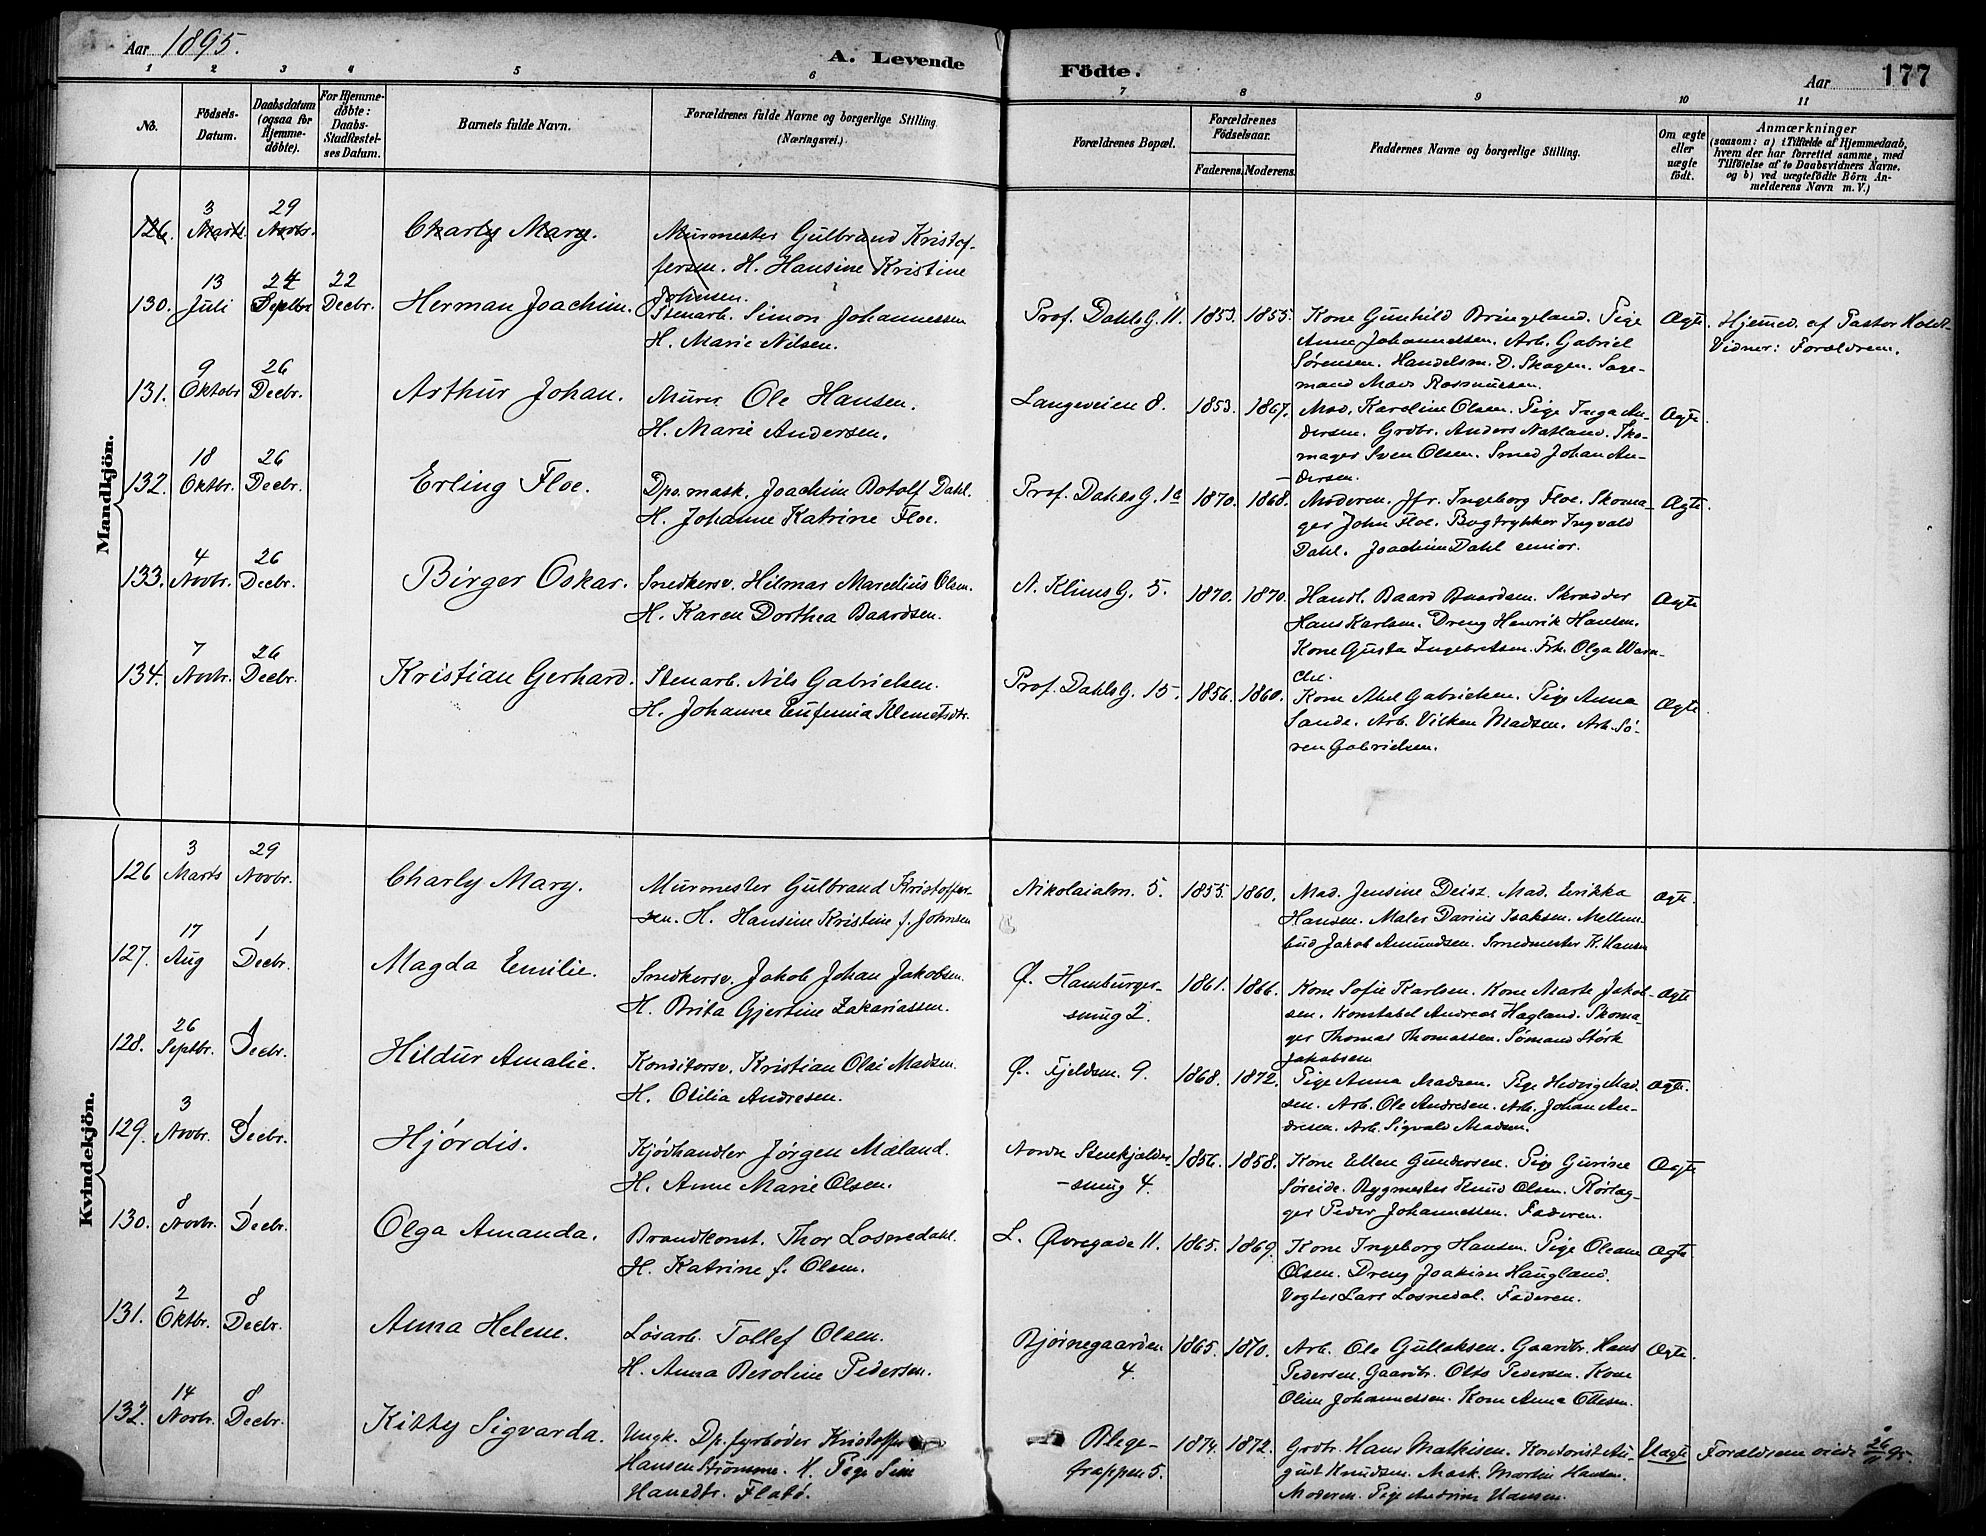 Aar 1895.
A. Levende Födte.
Aar 177
1 2 3 4 5 6 7 8 9 10 11
No.
Födsels-
Datum.
Daabsdatum
(ogsaa for
Hjemme-
döbte).
For Hjemme-
döbte:
Daabs-
Stadfæstel-
ses Datum.
Barnets fulde Navn.
Forældrenes fulde Navne og borgerlige Stilling
(Næringsvei.)
Forældrenes Bopæl.
Forældrenes
Födselsaar.
Faderens. Moderens.
Faddernes Navne og borgerlige Stilling.
Om ægte
eller
uægte
födt.
Anmærkninger
(saasom: a) i Tilfælde af Hjemmedaab,
hvem der har forrettet samme, med
Tilföielse af to Daabsvidners Navne.
og b) ved uægtefödte Börn An-
melderens Navn m. V.)
Mandkjön.
126. 3 Marts 29 Novbr. Charly Mary. Murmester Gulbrand Kristof-
fersen. H. Hansine Kristine
Johnsen.
130. 13 Juli 24 Septbr 22 Decbr. Herman Joachim. Stenarb. Simon Johannessen
H. Marie Nilsen.
Prof. Dahls G. 11. 1853. 1855. Kone Gunhild Bringeland. Pige
Anne Johannessen. Arb. Gabriel
Sørensen. Handelsm. D. Skogen. Sage-
mand Mads Rasmussen.
Ægte. Hjemmed. af Pastor Holdt.
Vidner: Forældrene.
131. 9 Oktobr 26 Decbr. Arthur Johan. Murer Ole Hansen.
H. Marie Andersen.
Langeveien 8. 1853. 1867. Mad. Karoline Olsen. Pige Inga An-
dersen. Grdbr. Anders Natland. Sko-
mager Sven Olsen. Smed Johan An-
dersen.
Ægte
132. 18 Oktbr. 26 Decbr. Erling Floe. Dps. mask. Joachim Botolf Dahl.
H. Johanne Katrine Floe.
Prof. Dahls G. 1a 1870. 1868. Moderen. Jfr. Ingeborg Floe. Skoma-
ger John Floe. Bogtrykker Ingvald
Dahl. Joachim Dahl senior.
Ægte.
133. 4 Novbr. 26 Decbr. Birger Oskar. Snedkersv. Hilmar Marcelius Olsen.
H. Karen Dorthea Baardsen.
N. Klims G. 5. 1870. 1870. Handl. Baard Baardsen. Skrædder
Hans Karlsen. Dreng Henrik Hansen.
Kone Gusta Ingebretsen. Frk. Olga Warn-
cke.
Ægte
134. 7 Novbr. 26 Decbr. Kristian Gerhard. Stenarb. Nils Gabrielsen.
H. Johanne Eufemia Klemetsdtr.
Prof. Dahls G. 15. 1856. 1860. Kone Abel Gabrielsen. Pige Anna
Sande. Arb. Vilken Madsen. Arb. Sø-
ren Gabrielsen.
Ægte
Kvindekjön.
126 3 Marts 29 Novbr. Charly Mary. Murmester Gulbrand Kristoffer-
sen. H. Hansine Kristine f. Johnsen
Nikolaialm. 5. 1855. 1860. Mad. Jensine Deist. Mad. Erikka
Hansen. Maler Darius Isaksen. Mellem-
bud Jakob Amundsen. Smedmester K. Hansen
Ægte.
127. 17 Aug 1 Decbr. Magda Emilie. Snedkersv. Jakob Johan Jakobsen.
H. Brita Gjertine Zakariassen.
Ø. Hamburger-
smug 2. 1861. 1866. Kone Sofie Karlsen. Kone Marte Jakob-
sen. Konstabel Andreas Hagland. Skoma-
ger Thomas Thomassen. Sømand Størk
Jakobsen
Ægte
128. 26 Septbr. 1 Decbr. Hildur Amalie. Konditorsv. Kristian Olai Madsen.
H. Otilia Andresen.
Ø. Fjeldsm. 9. 1868. 1872. Pige Anna Madsen. Pige Hedvig Mad-
sen. Arb. Ole Andresen. Arb. Johan An-
dresen. Arb. Sigvald Madsen.
Ægte.
129. 3 Novbr. 1 Decbr. Hjørdis. Kjødhandler Jørgen Mæland.
H. Anne Marie Olsen.
Nordre Stenkjelder-
smug 4. 1856. 1858. Kone Ellen Gundersen. Pige Gurine
Søreide. Bygmester Knud Olsen. Rørlæg-
ger Peder Johannessen. Faderen.
Ægte
130. 8 Novbr. 1 Decbr. Olga Amanda. Brandkonst. Thor Losnedahl.
H. Katrine f. Olsen.
L. Øvregade 11. 1865. 1869. Kone Ingeborg Hansen. Pige Oleane
Olsen. Dreng Joakim Haugland.
Vogter Lars Losnedal. Faderen.
Ægte
131. 2 Oktbr. 8 Decbr. Anna Helene. Løsarb. Tollef Olsen.
H. Anna Beroline Pedersen.
Bjørnegaarden
4. 1865. 1870. Arb. Ole Gullaksen. Gaardbr. Hans
Pedersen. Gaardbr. Olds Pedersen. Kone
Oline Johannessen. Kone Anna Ottesen.
Ægte.
132. 14 Novbr. 8 Decbr. Kitty Sigvarda. Ungk. Dp. fyrbøder Kristoffer
Hansen Strømme. Pige Sine
Hansdtr. Flatø.
Blege-
trappen 5. 1874. 1872. Grdbr. Hans Mathisen. Kondorist Au-
gust Knudsen. Mask. Martin Hansen.
Moderen. Pige Andrine Hansen.
Uægte Forældrene viede 26/11 95.